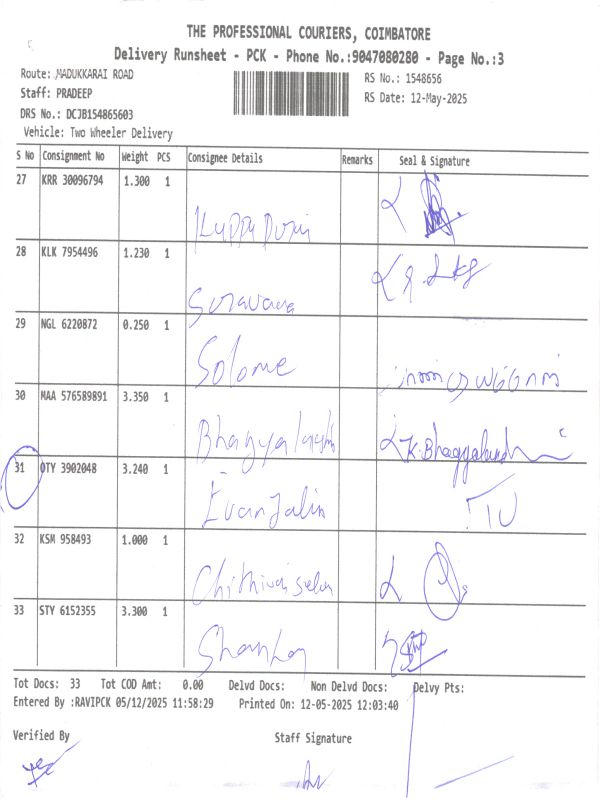 THE PROFESSIONAL COURIERS, COIMBATORE
Delivery Runsheet - PCK - Phone No.:9047080280 - Page No.:3
Route: MADUKKARAI ROAD
RS No.: 1548656
Staff: PRADEEP
RS Date: 12-May-2025
DRS No.: DCJB154865603
Vehicle: Two Wheeler Delivery
S No Consignment No Weight PCS Consignee Details Remarks Seal & Signature
27 KRR 30096794 1.300 1
28 KLK 7954496 1.230 1
29 NGL 6220872 0.250 1
Solome
30 MAA 576589891 3.350 1
Bhagyalakshmi K.Bhagyalakshmi
31 OTY 3902048 3.240 1
Evanjalin
32 KSM 958493 1.000 1
33 STY 6152355 3.300 1
Tot Docs: 33 Tot COD Amt: 0.00 Delvd Docs: Non Delvd Docs: Delvy Pts:
Entered By :RAVIPCK 05/12/2025 11:58:29 Printed On: 12-05-2025 12:03:40
Verified By Staff Signature